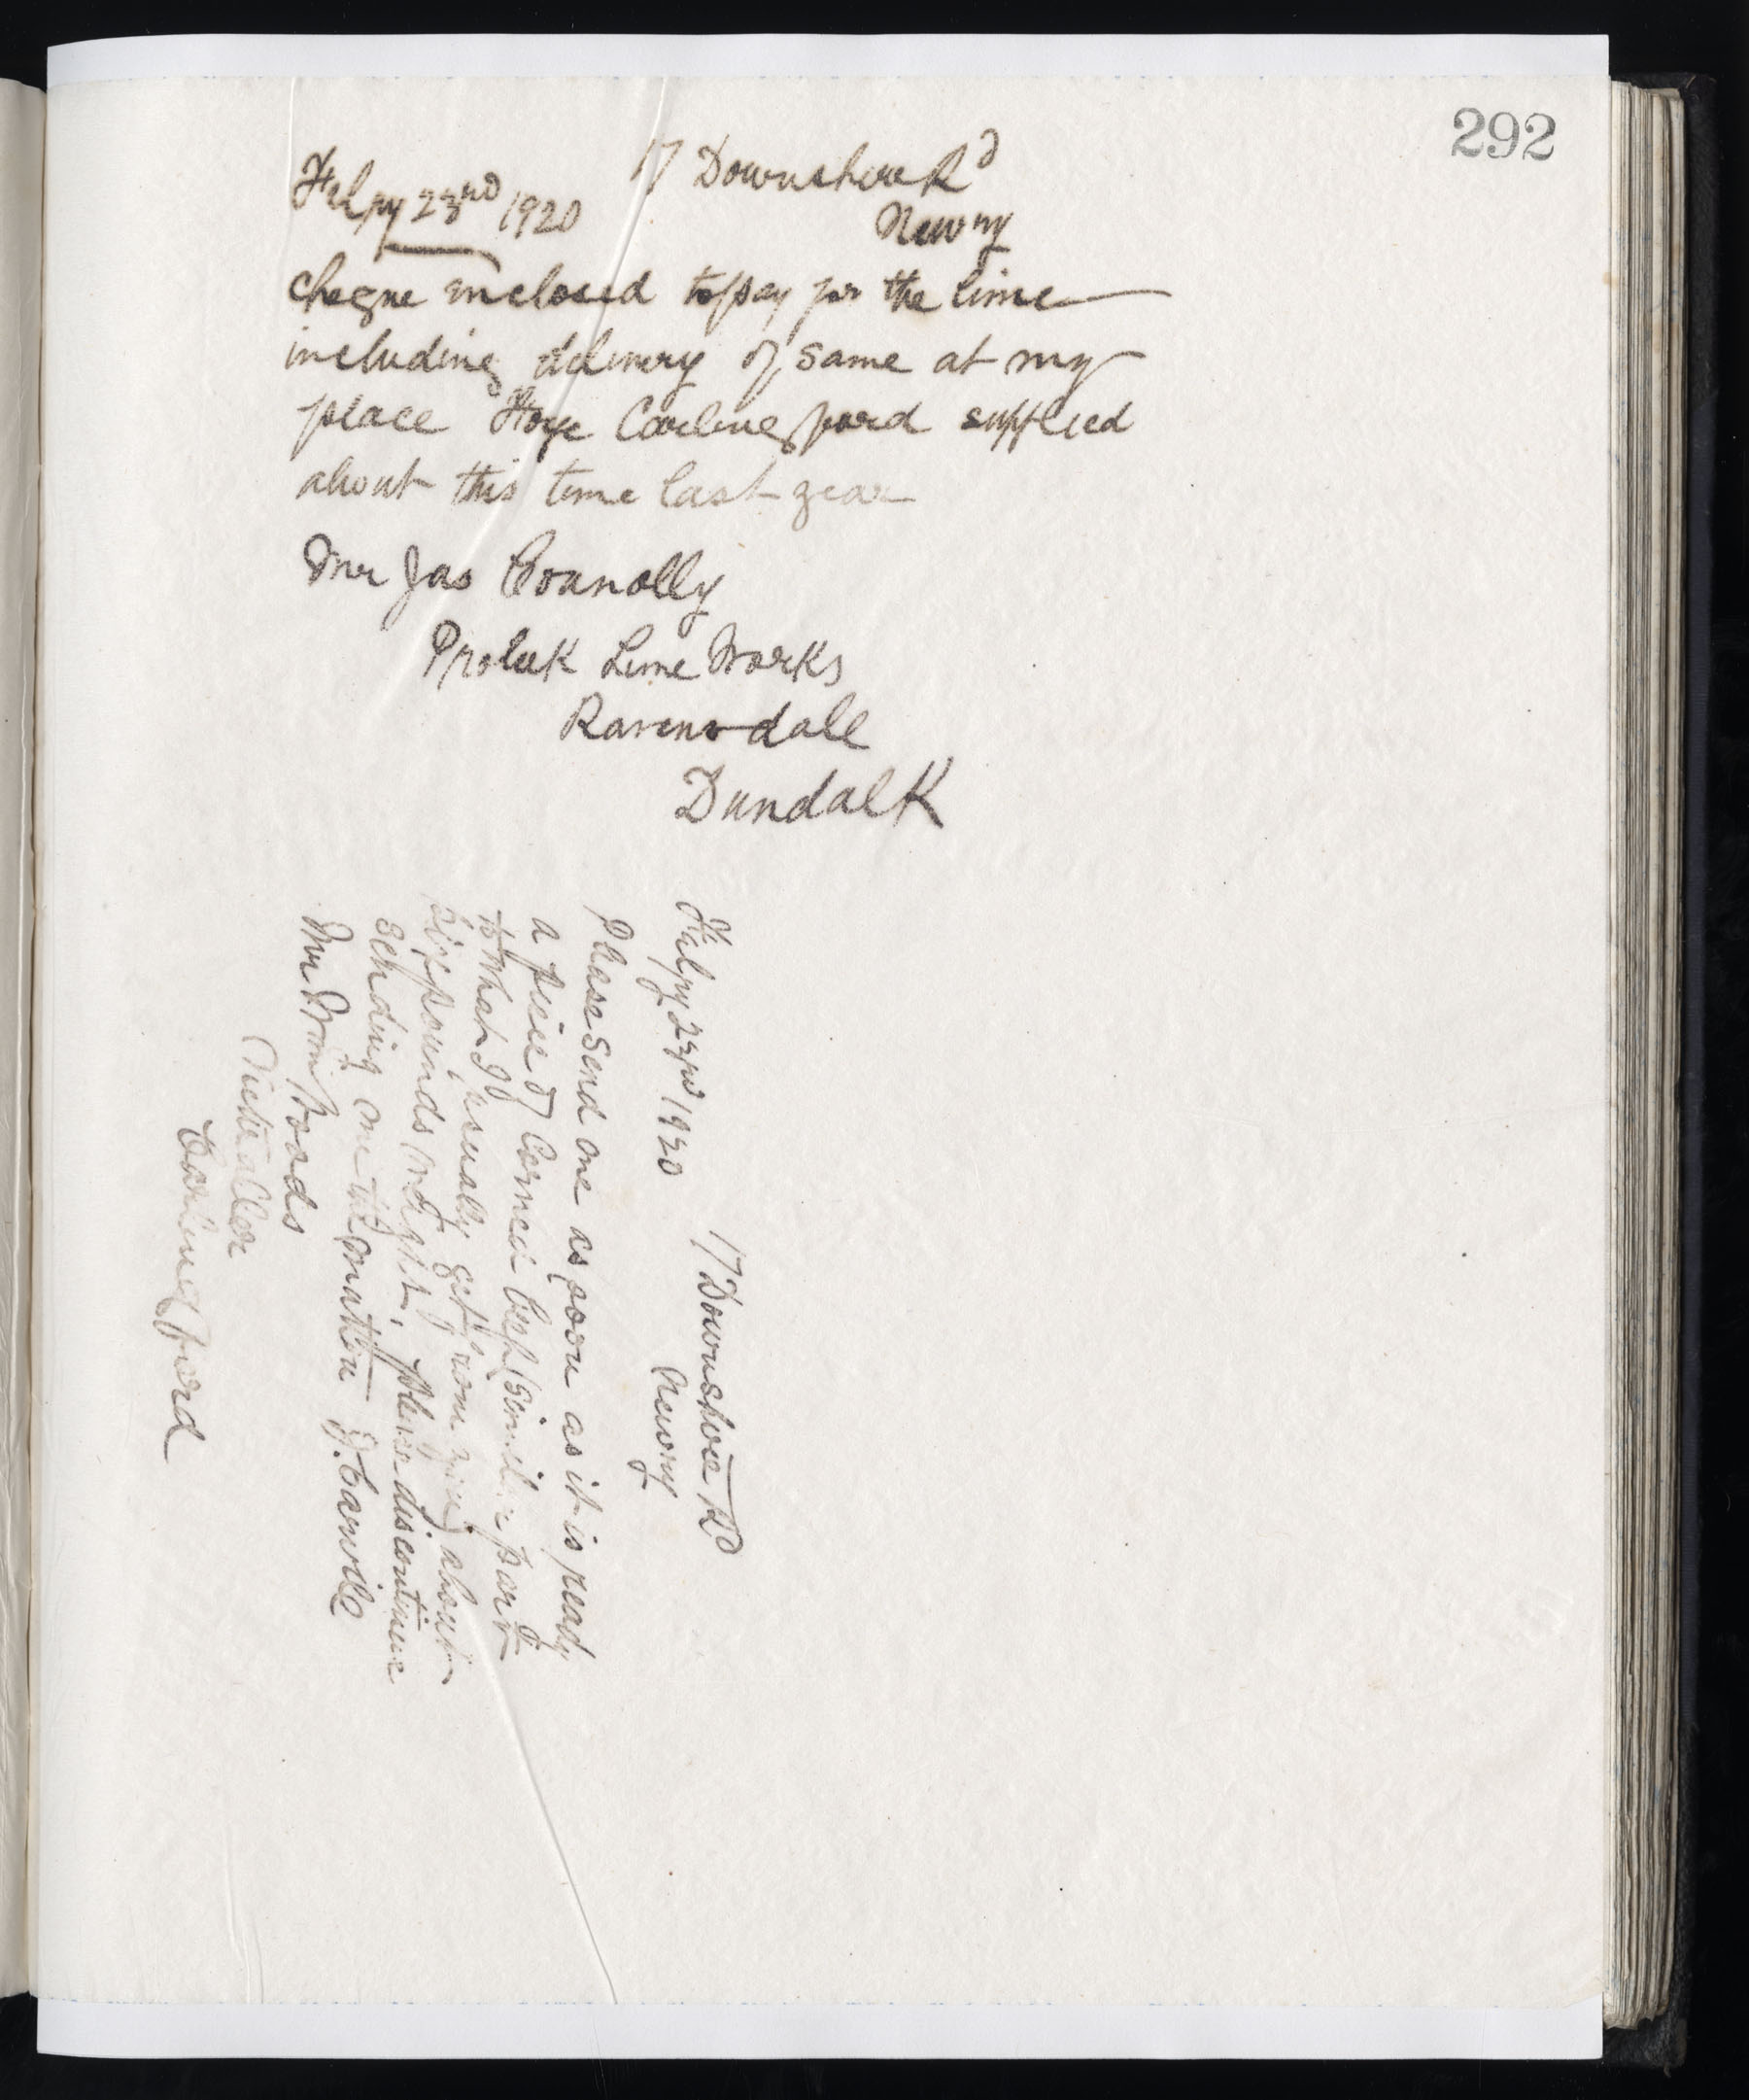 292
17 Downshire Rd
Feby 23rd 1920
Newry
cheque enclosed to pay for the lime
including delivery of same at my
place Carlingford supplied
about this time last year
Mr Jas Connolly
Proleek Lime Works
Ravensdale
Dundalk
17 Downshire Rd
Feby 23rd 1920
Newry
Please send me as soon as it is ready
a piece of Corned beef (similar part
to what I usually get from you) about
six pounds weight. please discontinue
sending me the mutton J. Carvill
Mr Wm Woods
Victualler
Carlingford